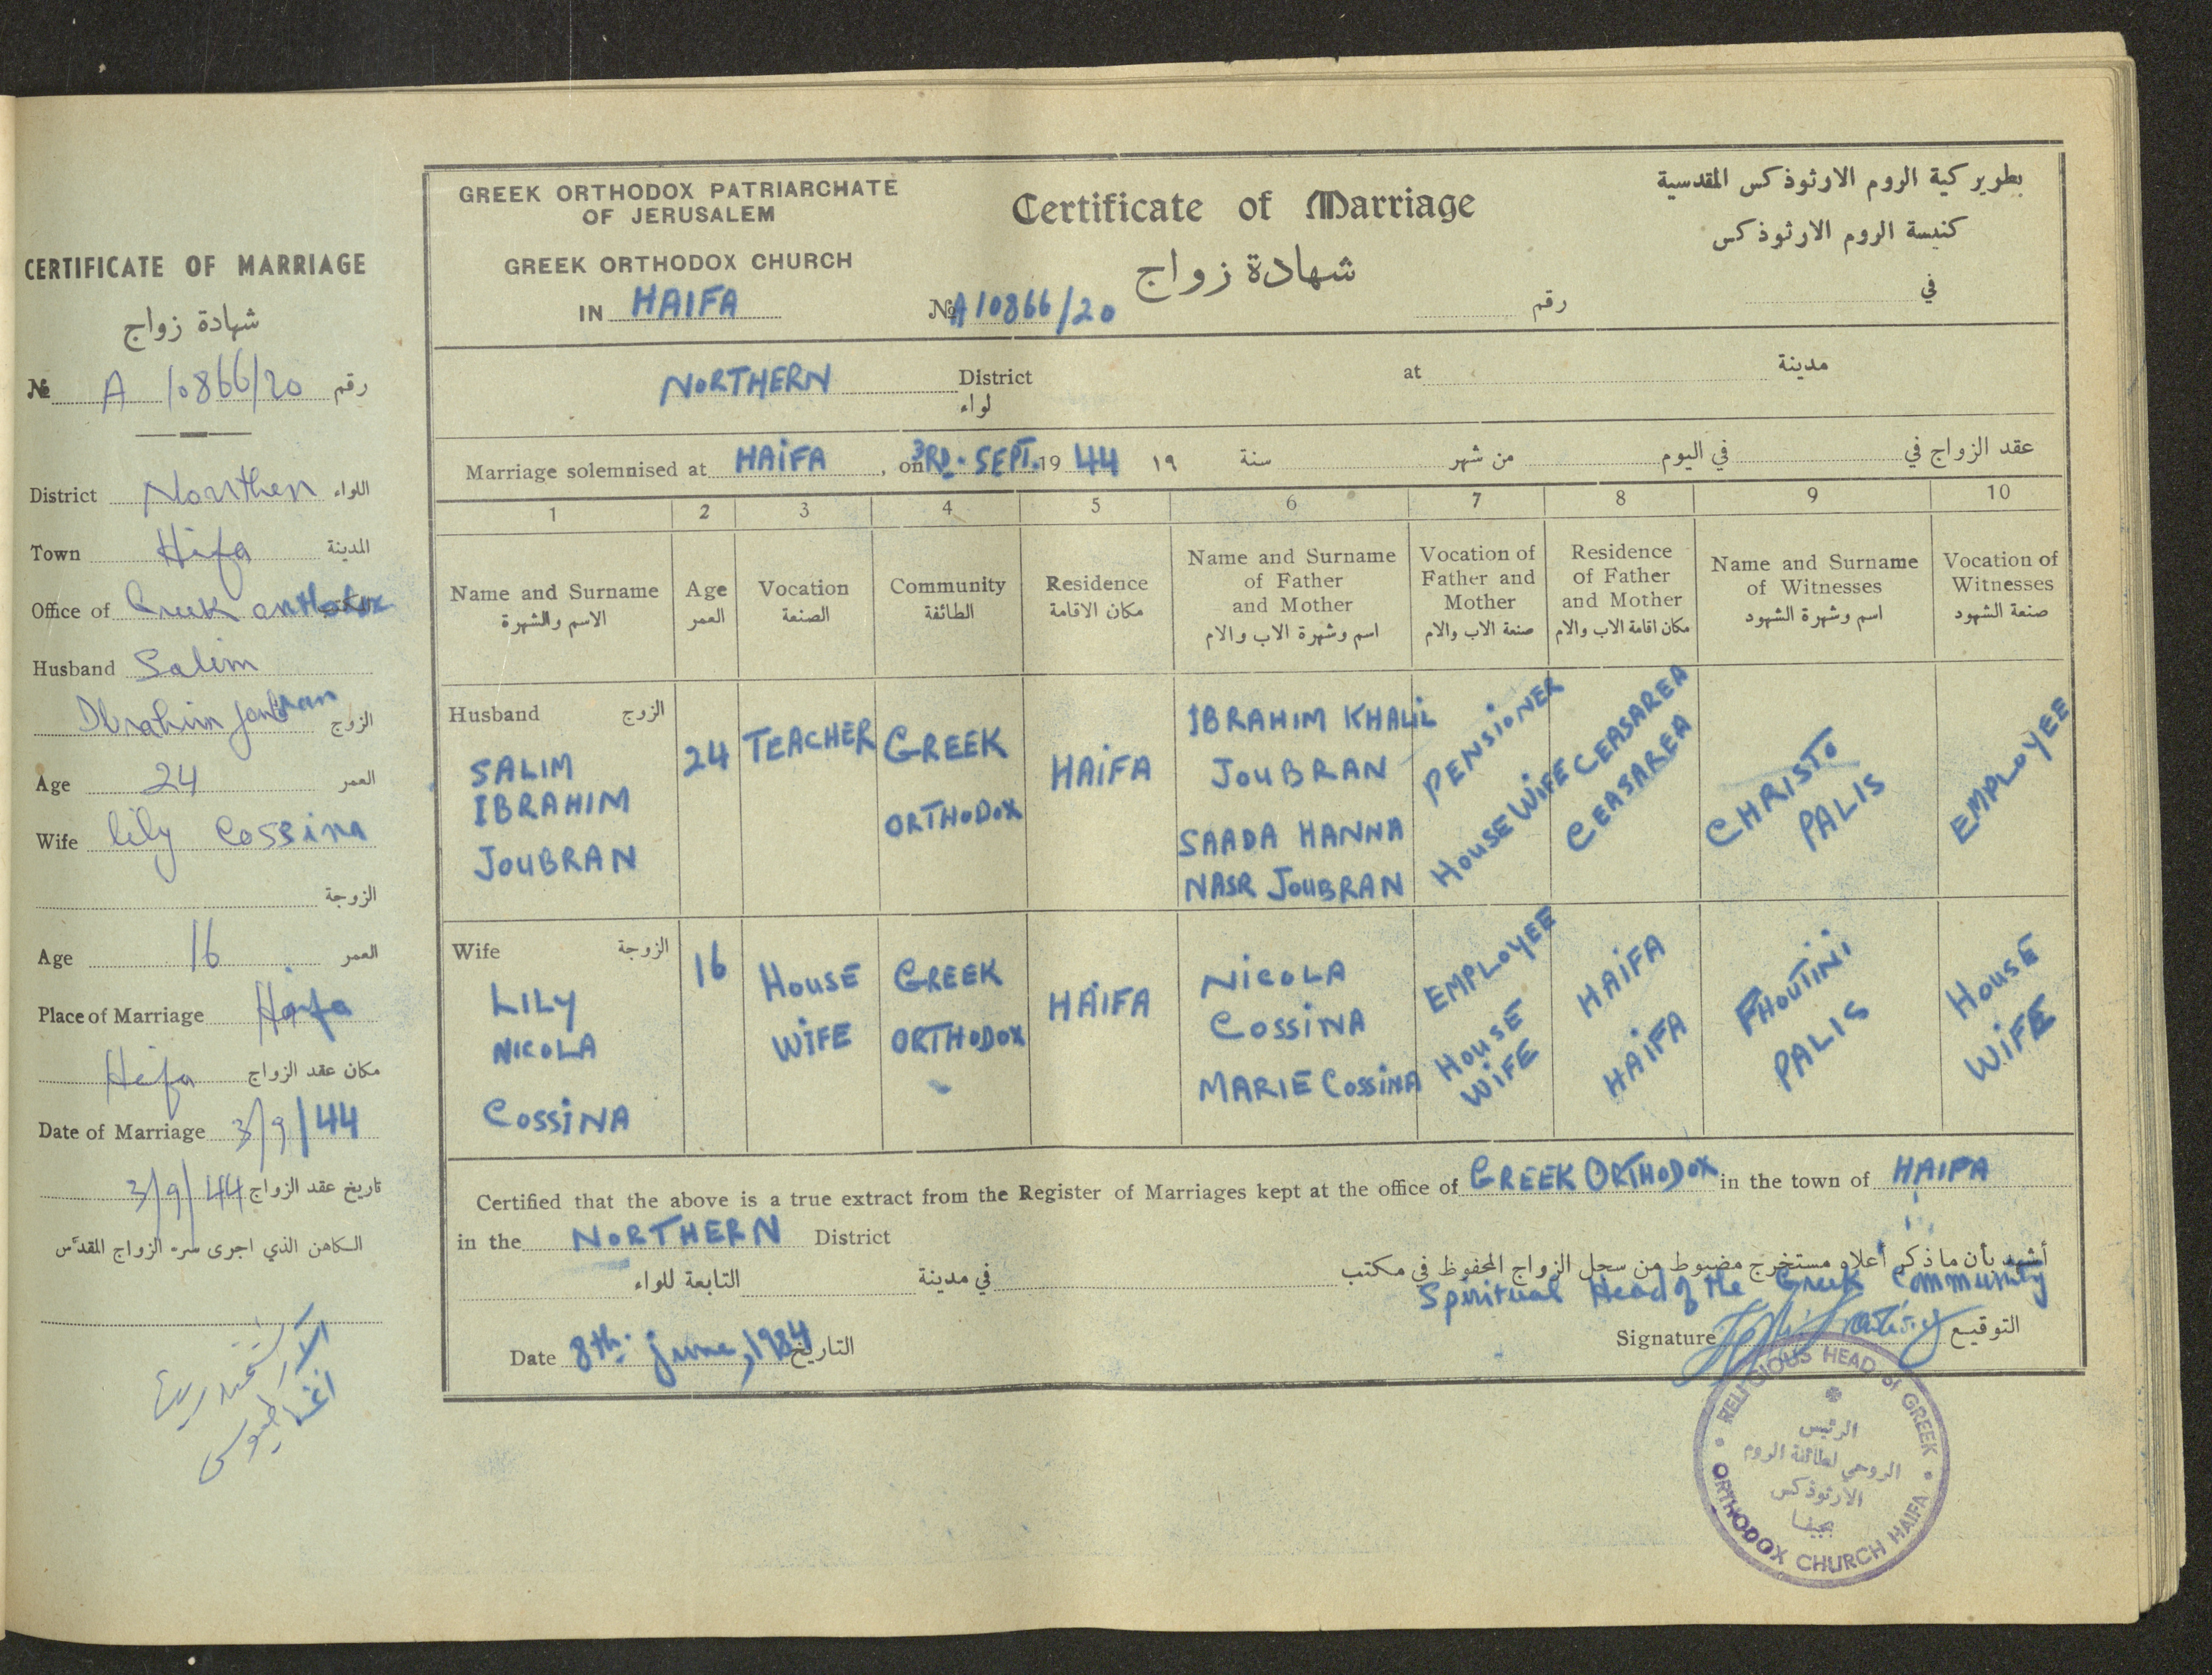 CERTIFICATE OF MARRIAGE
شهادة زواج
№ A 10866/20 رقم
District Northen اللواء
Town Hifa المدينة
Office of Greek orthodox
Husband Salim
Ibrahim Joubran الزوج
Age 24 العمر
Wife lily Cossina
الزوجة
Age 16 العمر
Place of Marriage Haifa
Heifa مكان عقد الزواج
Date of Marriage 3/9/44
3/9/44 تاريخ عقد الزواج
الكاهن الذي اجرى سر الزواج المقدّس
GREEK ORTHODOX PATRIARCHATE
OF JERUSALEM
GREEK ORTHODOX CHURCH
IN HAIFA
Certificate of Marriage
شهادة زواج
№ A10866/20
رقم
بطريركية الروم الارثوذكس المقدسية
كنيسة الروم الارثوذكس
في
NORTHERN District at مدينة
لواء
Marriage solemnised at HAIFA, on 3RD. SEPT. 19 44 ١٩ سنة من شهر في اليوم عقد الزواج في
1 2 3 4 5 6 7 8 9 10
Name and Surname
الاسم والشهرة
Age
العمر
Vocation
الصنعة
Community
الطائفة
Residence
مكان الاقامة
Name and Surname
of Father
and Mother
اسم وشهرة الاب والام
Vocation of
Father and
Mother
صنعة الاب والام
Residence
of Father
and Mother
مكان اقامة الاب والام
Name and Surname
of Witnesses
اسم وشهرة الشهود
Vocation of
Witnesses
صنعة الشهود
Husband الزوج
SALIM
IBRAHIM
JOUBRAN
24
TEACHER
GREEK
ORTHODOX
HAIFA
IBRAHIM KHALIL
JOUBRAN
SAADA HANNA
NASR JOUBRAN
PENSIONER
HOUSEWIFE
CEASAREA
CEASAREA
CHRISTO
PALIS
EMPLOYEE
Wife الزوجة
LILY
NICOLA
COSSINA
16
HOUSE
WIFE
GREEK
ORTHODOX
HAIFA
NICOLA
COSSINA
MARIE COSSINA
EMPLOYEE
HOUSE
WIFE
HAIFA
HAIFA
PHOUTINI
PALIS
HOUSE
WIFE
Certified that the above is a true extract from the Register of Marriages kept at the office of GREEK ORTHODOX in the town of HAIFA
in the NORTHERN District
أشهد بأن ما ذكر أعلاه مستخرج مضبوط من سجل الزواج المحفوظ في مكتب
في مدينة التابعة للواء
Spiritual Head of the Greek Community
Date 8th. June, 1984 التاريخ
Signature التوقيع
RELIGIOUS HEAD of GREEK
ORTHODOX CHURCH HAIFA
الرئيس
الروحي لطائفة الروم
الارثوذكس
بحيفا